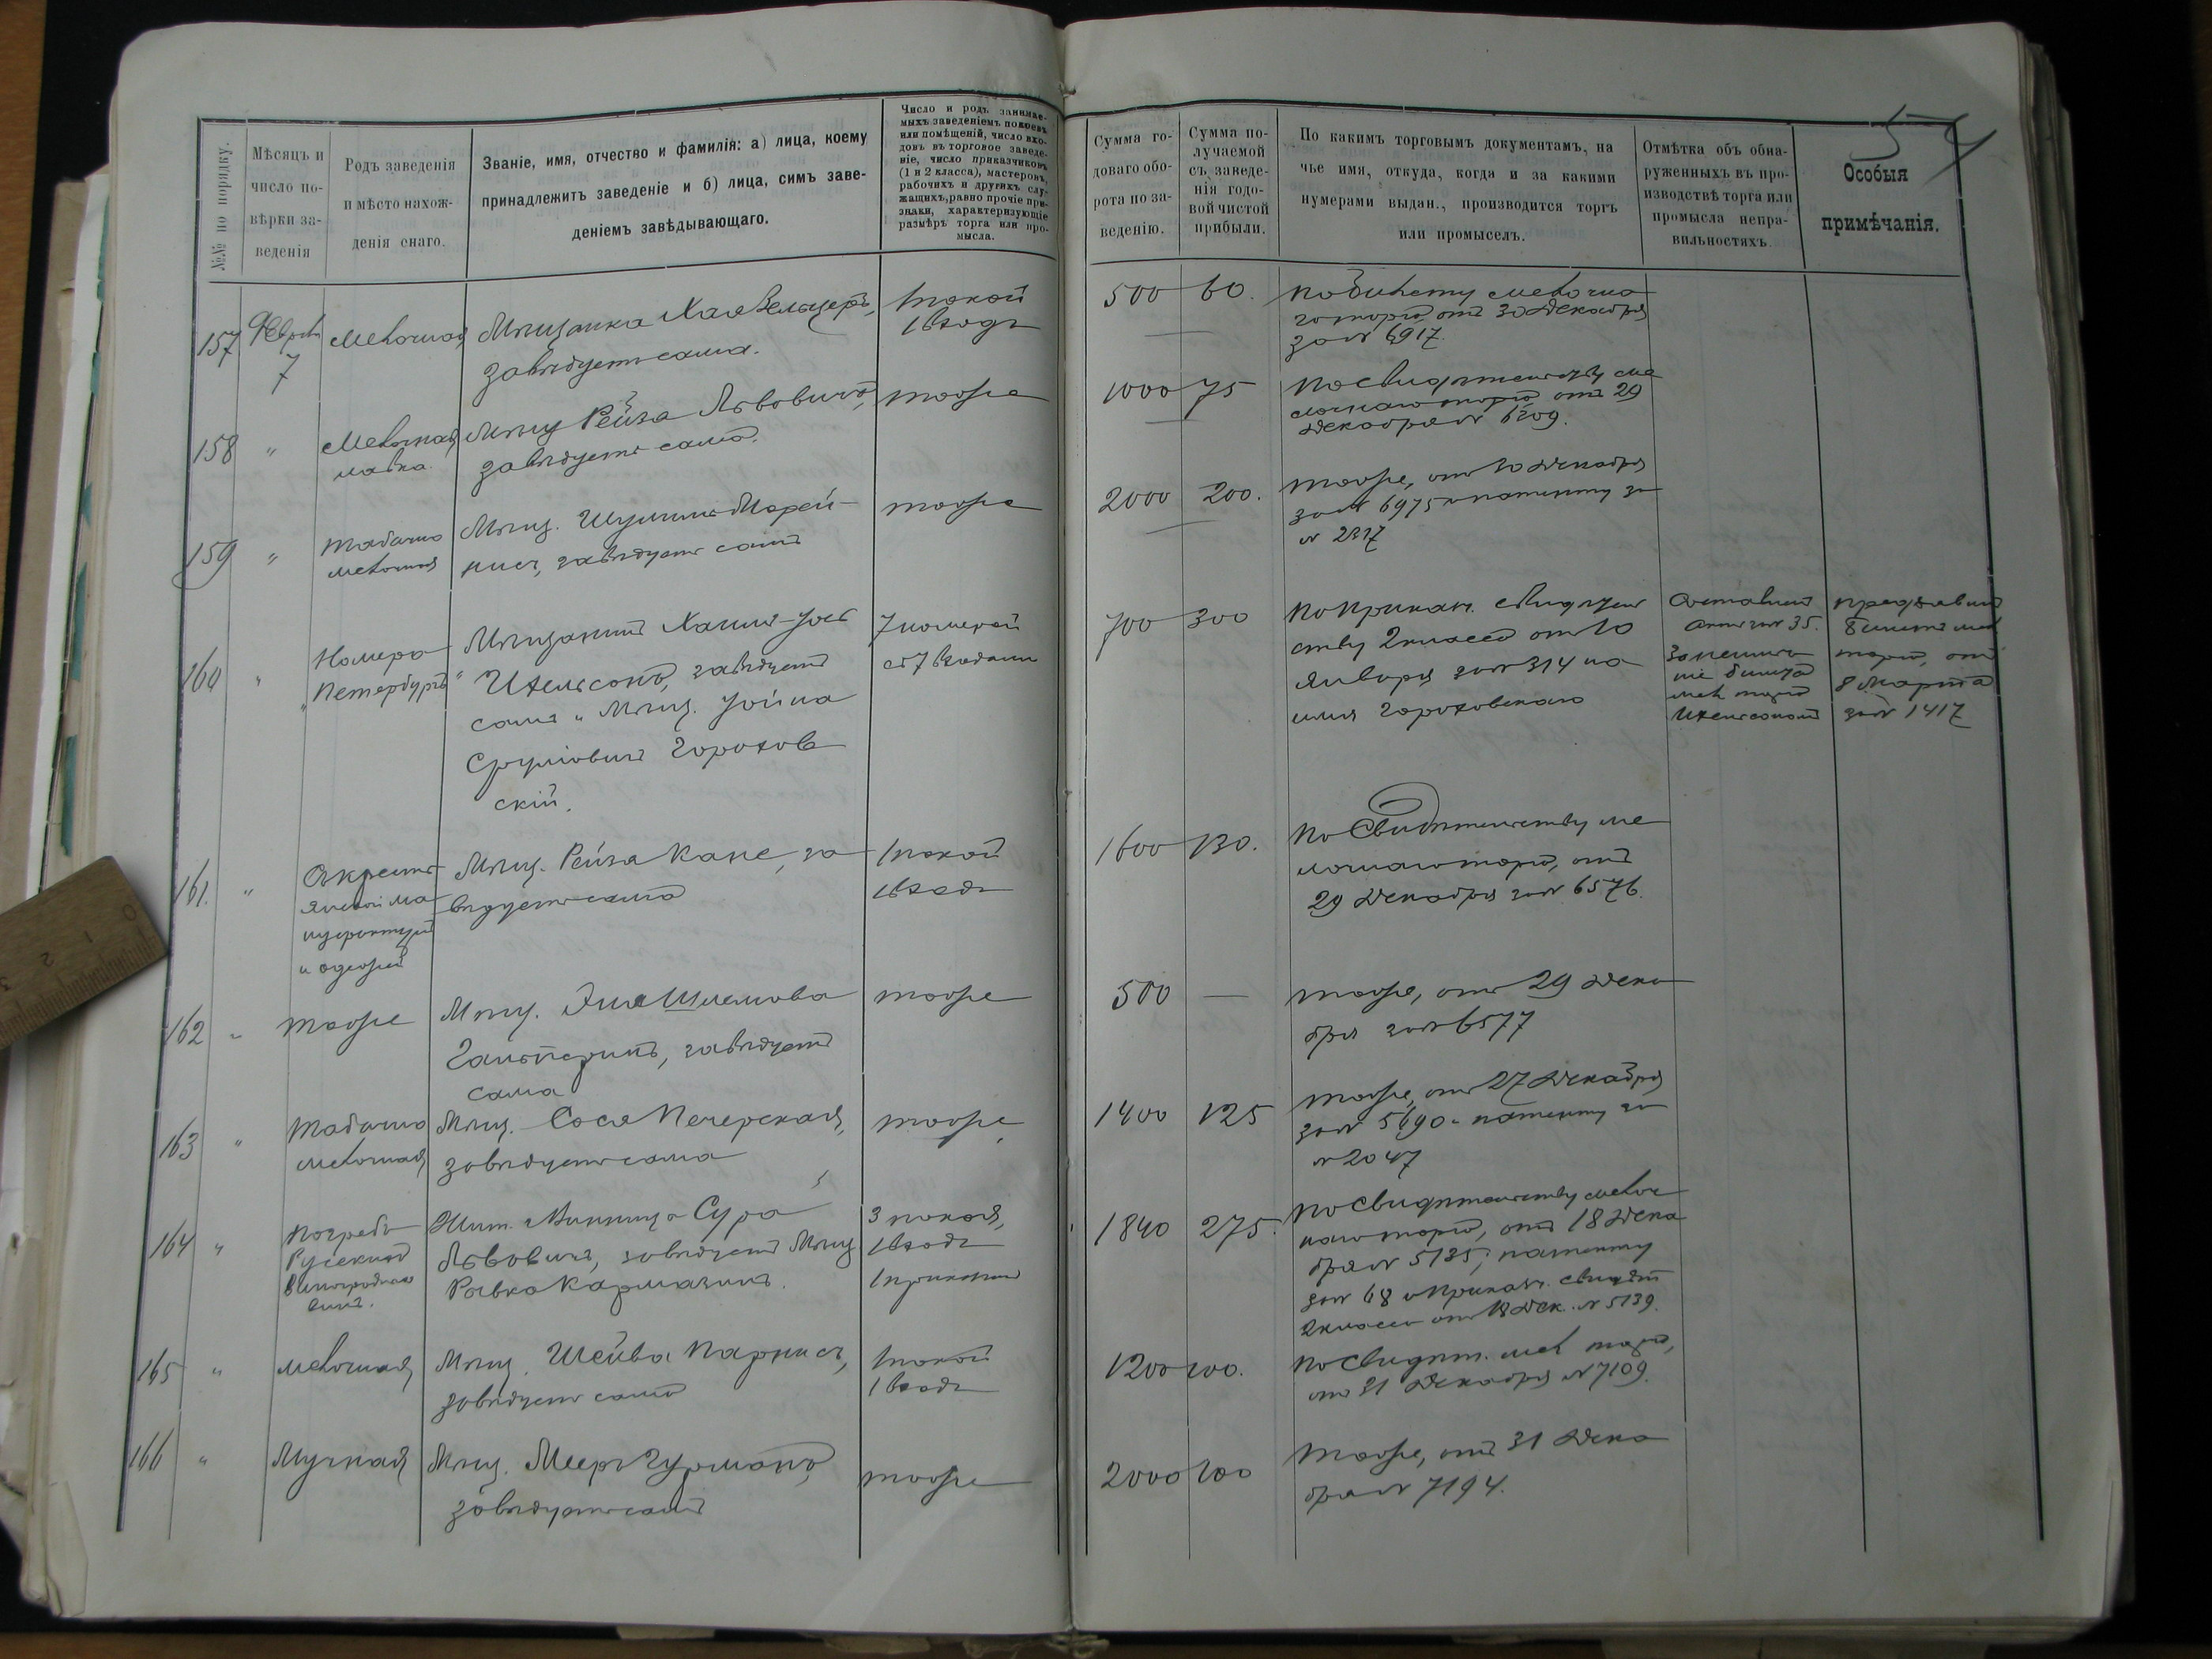 54
№№ по порядку.
Мѣсяцъ и
число по-
вѣрки за-
веденія
Родъ заведенія
и мѣсто нахож-
денія онаго.
Званіе, имя, отчество и фамилія: а) лица, коему
принадлежитъ заведеніе и б) лица, симъ заве-
деніемъ завѣдывающаго.
Число и родъ занимае-
мыхъ заведеніемъ покоевъ
или помѣщеній, число вхо-
довъ въ торговое заведе-
ніе, число приказчиковъ
(1 и 2 класса), мастеровъ,
рабочихъ и другихъ слу-
жащихъ, равно прочіе при-
знаки, характеризующіе
размѣръ торга или про-
мысла.
Сумма го-
доваго обо-
рота по за-
веденію.
Сумма по-
лучаемой
съ заведе-
нія годо-
вой чистой
прибыли.
По какимъ торговымъ документамъ, на
чье имя, откуда, когда и за какими
нумерами выдан., производится торгъ
или промыселъ.
Отмѣтка объ обна-
руженныхъ въ про-
изводствѣ торга или
промысла непра-
вильностяхъ.
Особыя
примѣчанія.
157
7
Мелочная
Мѣщанка Хая Вельцеръ,
завѣдуетъ сама.
1 покой
1 входъ
500
60.
по билету мелочна
го торга, отъ 30 Декабря
за № 6917.
158
"
Мелочная
лавка.
Мѣщ Рейза Львовичъ,
завѣдуетъ сама.
тоже
1000
75
по свидѣтельству ме
лочнаго торга отъ 29
Декабря № 6209.
159
"
Табачно
мелочная
Мѣщ. Шулимъ Марей-
нисъ, завѣдуетъ самъ
тоже
2000
200.
тоже, отъ 30 Декабря
за № 6975 и патенту за
№ 2317
160
"
Номера
"Петербургъ"
Мѣщанинъ Хаимъ-Уось
Ицельсонъ, завѣдуетъ
самъ и Мѣщ. Уойна
Срулiовичъ Горохов
скій.
7 комнатъ
съ 7 входами
700
300
по приказч. свидѣтель
ству 2 класса отъ 10
Января за № 314 на
имя Гороховскаго
Составленъ
актъ за № 35.
предъявилъ
билетъ мел
торга, отъ
8 Марта
за № 1417
161.
"
Мѣщ. Рейза Капе, за
вѣдуетъ сама
1 покой
1 входъ
1600
130.
по Свидѣтельству ме
лочнаго торга, отъ
29 Декабря за № 6576.
162
"
тоже
Мѣщ. Эля Шлемова
Гальперинъ, завѣдуетъ
сама
тоже
500
—
тоже, отъ 29 Дека
бря за № 6577
163
"
Табачно
мелочная
Мѣщ. Сося Печерская,
завѣдуетъ сама
тоже
1400
125
тоже, отъ 27 Декабря
за № 5690 и патенту за
№ 2047
164
"
Погребъ
Русскихъ
виноградныхъ
винъ.
Жит. г. Винницы Сура
Львовичъ, завѣдуетъ Мѣщ
Рывка Кармазинъ.
3 покоя,
1 входъ
1 приказчикъ
1840
275.
по свидѣтельству мелоч
наго торга, отъ 18 Дека
бря № 5135, патенту
за № 68 и приказч. свидѣт
2 класса отъ 18 Дек. № 5139.
165
"
мелочная
Мѣщ. Шейва Парнисъ,
завѣдуетъ сама
1 покой
1 входъ
1200
100.
по свидѣт. мел торга,
отъ 31 Декабря № 7109.
166
"
Мучная
Мѣщ. Мееръ Гурманъ,
завѣдуетъ самъ
тоже
2000
100
тоже, отъ 31 Дека
бря № 7194.
0
1
2
3